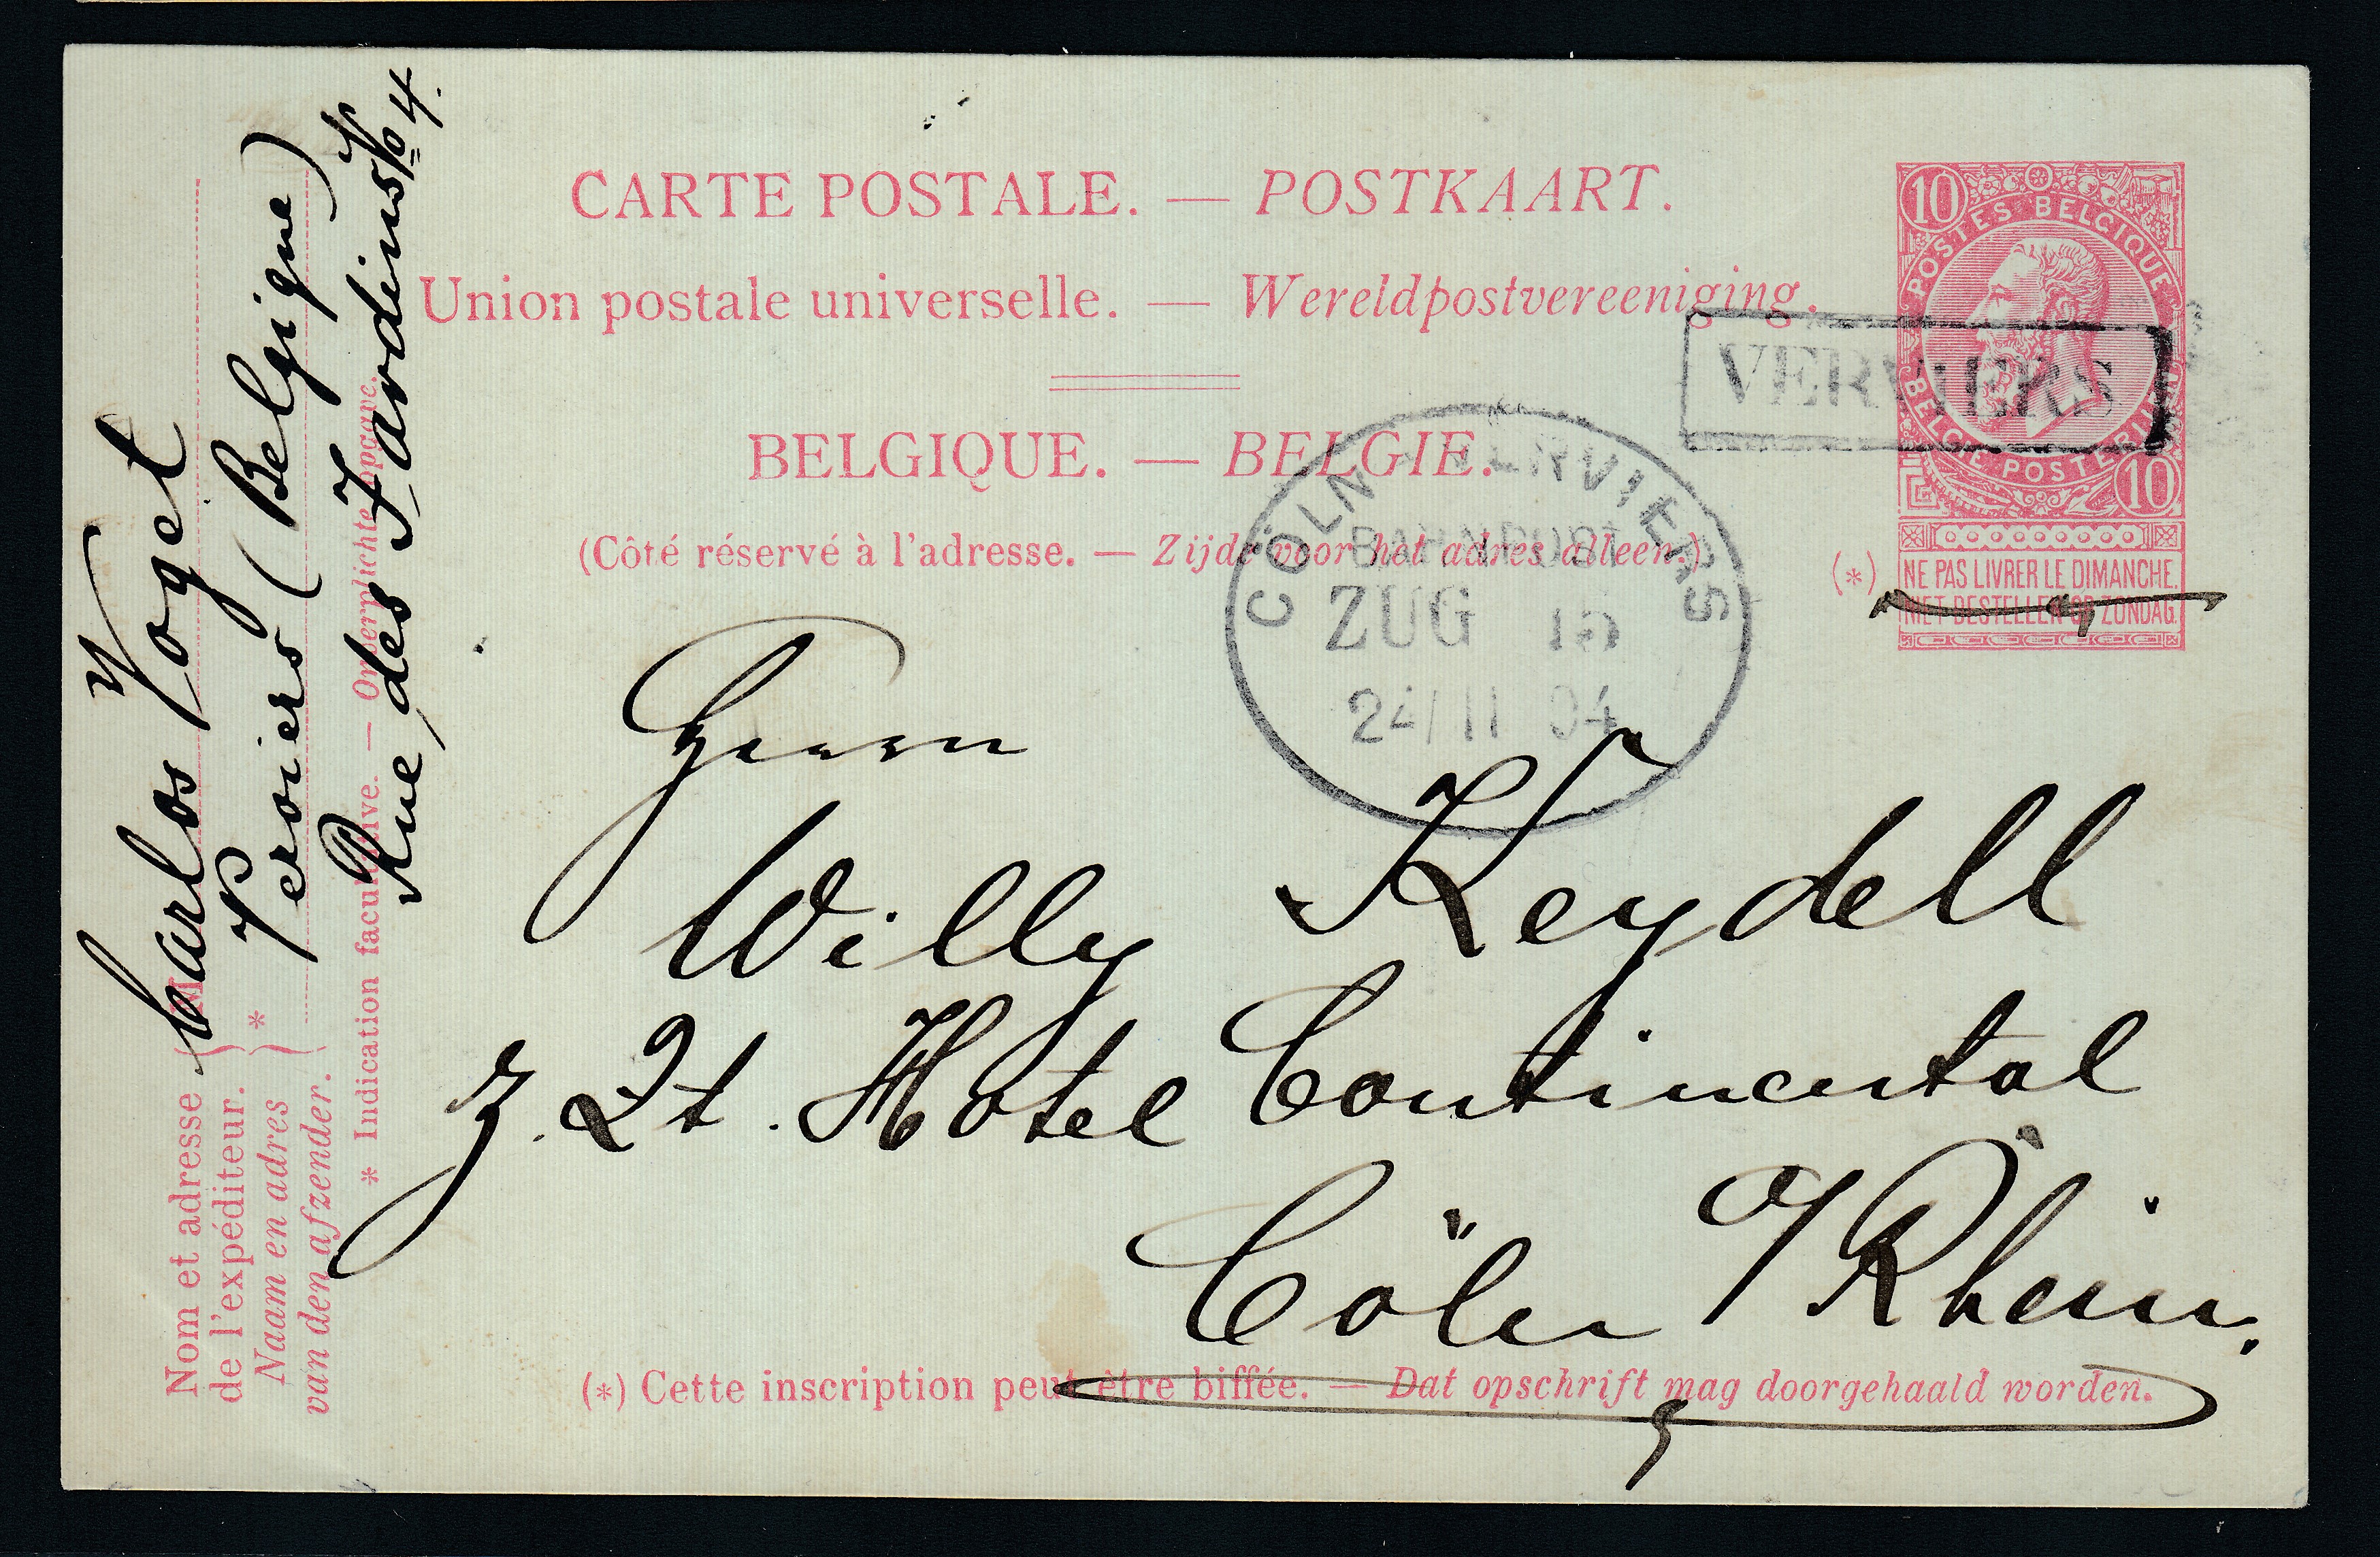 CARTE POSTALE. — POSTKAART.
Union postale universelle. — Wereldpostvereeniging.
BELGIQUE. — BELGIE.
(Côté réservé à l'adresse. — Zijde voor het adres alleen.)
10
POSTES BELGIQUE
BELGIE POSTERIJEN
10
(*) NE PAS LIVRER LE DIMANCHE.
NIET BESTELLEN OP ZONDAG.
VERVIERS
CÖLN VERVIERS
BAHNPOST
ZUG 15
24/11 04
Herrn
Willy Keydell
z. Zt. Hotel Continental
Cöln a/Rhein.
(*) Cette inscription peut être biffée. — Dat opschrift mag doorgehaald worden.
Nom et adresse
de l'expéditeur.
Naam en adres
van den afzender.
M
*
Carlos Voget
Verviers (Belgique)
Rue des Jardins No 4.
* Indication facultative. — Onverplichte opgave.